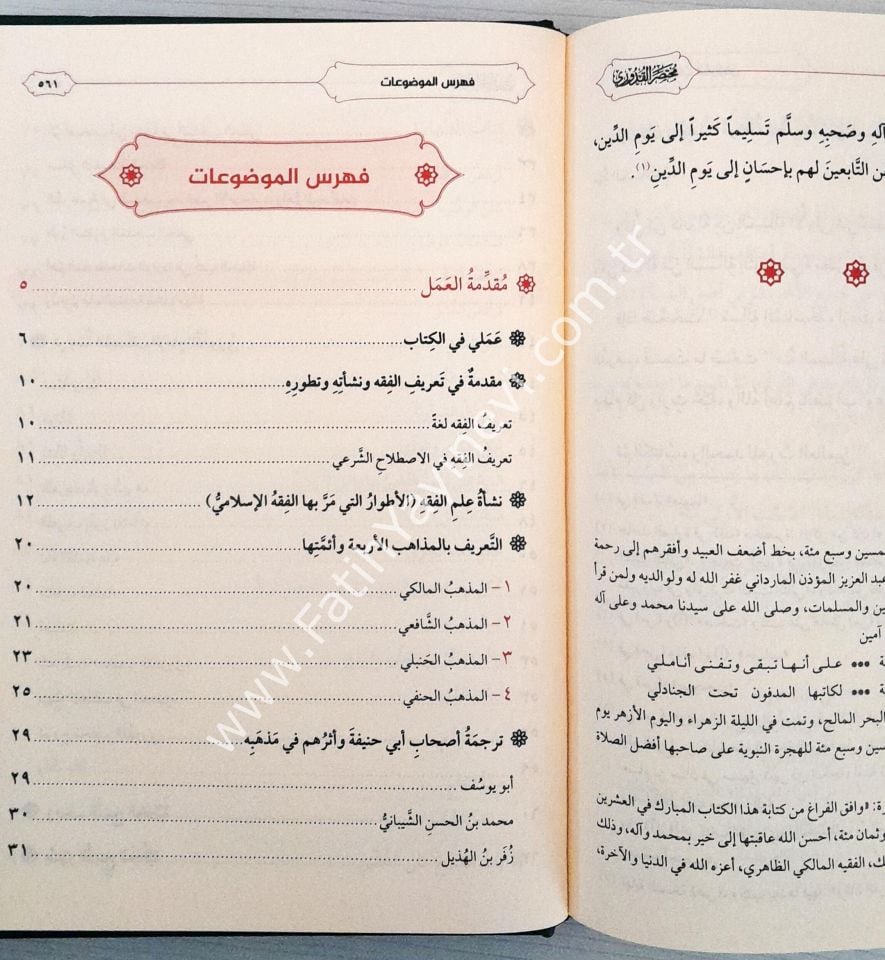 مختصر القدوري
آلهِ وصَحبِهِ وسلَّم تَسليماً كَثيراً إلى يَومِ الدِّين،
ن التَّابعينَ لهم بإحسَانٍ إلى يَومِ الدِّينِ(١).
مسين وسبع مئة، بخط أضعف العبيد وأفقرهم إلى رحمة
عبد العزيز المؤذن المارداني غفر الله له ولوالديه ولمن قرأ
ين والمسلمات، وصلى الله على سيدنا محمد وعلى آله
آمين
ة ••• على أنها تبقى وتفنى أناملي
ة ••• لكاتبها المدفون تحت الجنادلي
البحر المالح، وتمت في الليلة الزهراء واليوم الأزهر يوم
سين وسبع مئة للهجرة النبوية على صاحبها أفضل الصلاة
رة: «وافق الفراغ من كتابة هذا الكتاب المبارك في العشرين
وثمان مئة، أحسن الله عاقبتها إلى خير بمحمد وآله، وذلك
ك، الفقيه المالكي الظاهري، أعزه الله في الدنيا والآخرة،
فهرس الموضوعات ٥٦١
فهرس الموضوعات
مُقدِّمةُ العَمَل ٥
عَمَلي في الكِتاب ٦
مقدمةٌ في تَعريفِ الفِقه ونشأتِهِ وتطورِهِ ١٠
تعريفُ الفِقه لغةً ١٠
تعريفُ الفِقه في الاصطلاحِ الشَّرعي ١١
نشأةُ عِلمِ الفِقهِ (الأطوارُ التي مَرَّ بها الفِقهُ الإسلاميُّ) ١٢
التَّعريف بالمذاهب الأربعة وأئمَّتِها ٢٠
١- المذهبُ المالكي ٢٠
٢- المذهبُ الشَّافعي ٢١
٣- المذهبُ الحَنبلي ٢٣
٤- المذهبُ الحنفي ٢٥
ترجمَةُ أصحابِ أبي حنيفةَ وأثرُهم في مَذهَبِه ٢٩
أبو يوسُف ٢٩
محمد بنُ الحسنِ الشَّيبانيُّ ٣٠
زُفَر بنُ الهُذيل ٣١
www.FatihYayinevi.com.tr